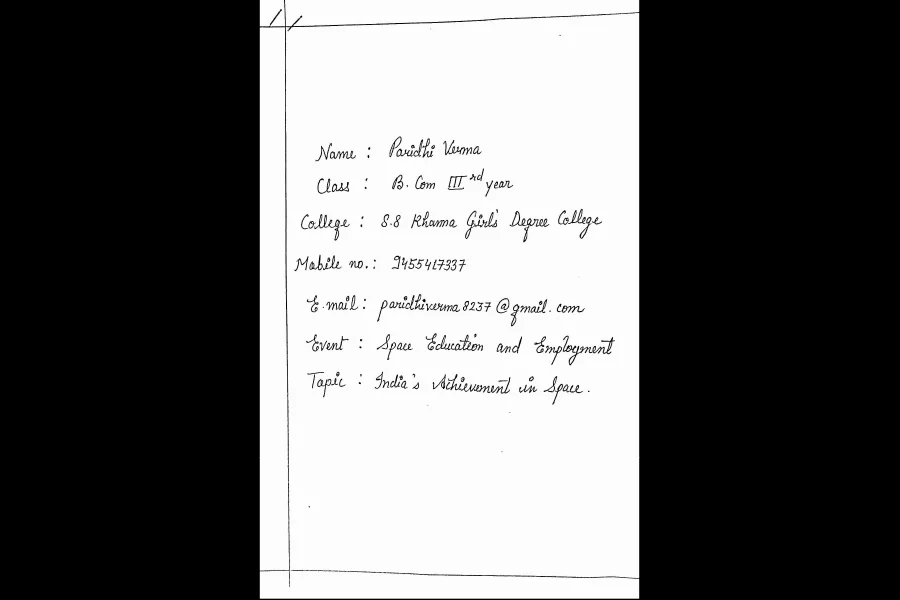 Name : Paridhi Verma
Class : B. Com III rd year
College : S.S Khanna Girl's Degree College
Mobile no. : 9455417337
E.mail : paridhiverma8237@gmail.com
Event : Space Education and Employment
Topic : India's Achievement in Space.